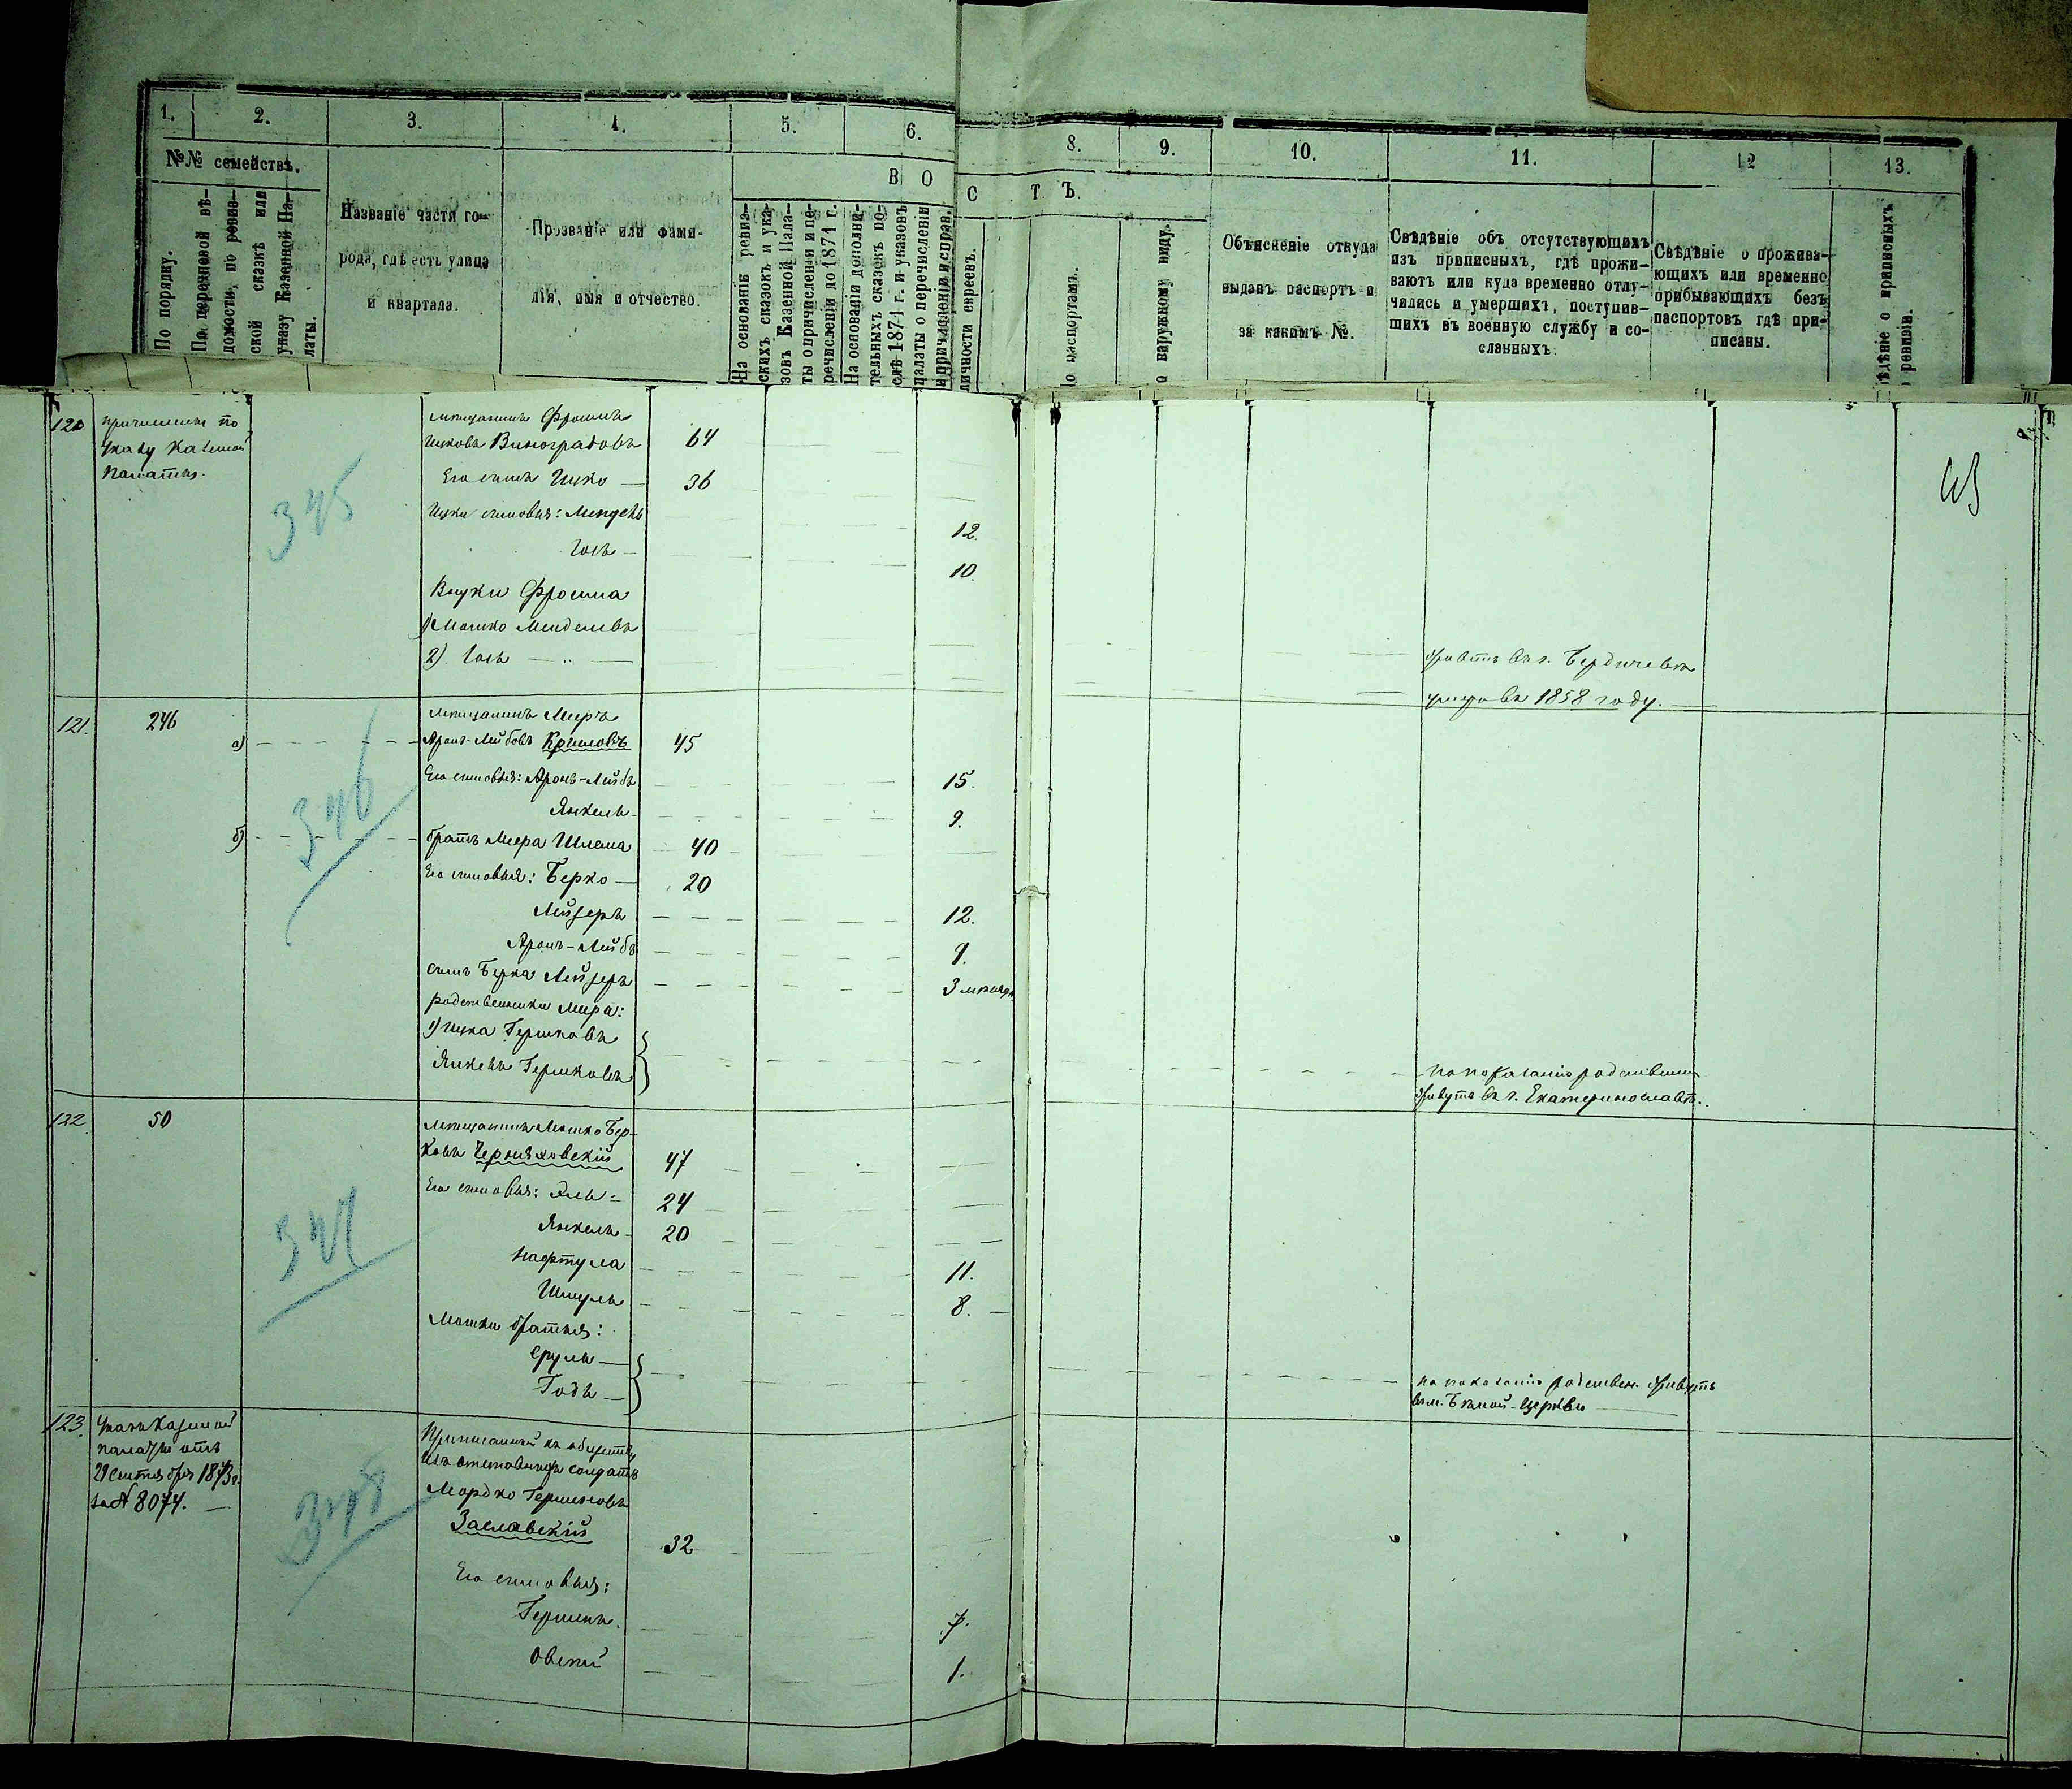 1. 2. 3. 4. 5. 6. 8. 9. 10. 11. 12 13.
№№ семействъ.
В О
С Т Ъ.
По порядку.
По перехневой вѣ-
домости, по ревиз-
ской сказкѣ или
указу Казенной Па-
латы.
Названіе части го-
рода, гдѣ есть улица
и квартала.
Прозваніе или фами-
лія, имя и отчество.
На основаніи ревиз-
скихъ сказокъ и ука-
зовъ Казенной Пала-
ты о причисленіи и пе-
речисленіи до 1871 г.
На основаніи дополни-
тельныхъ сказокъ по-
слѣ 1871 г. и указовъ
палаты о перечисленіи
и причисленіи и справ.
личности евреевъ.
о паспортамъ.
о наружному виду.
Объясненіе откуда
выданъ паспортъ и
за какимъ №.
Свѣдѣніе объ отсутствующихъ
изъ приписныхъ, гдѣ прожи-
ваютъ или куда временно отлу-
чились и умершихъ, поступив-
шихъ въ военную службу и со-
сланныхъ.
Свѣдѣніе о прожива-
ющихъ или временно
прибывающихъ безъ
паспортовъ гдѣ при-
писаны.
ѣдѣніе о приписныхъ
ревизіи.
120 причислены по
Указу Казенной
Палаты.
345
мѣщанинъ Фроимъ
Ицковъ Виноградовъ 64
Его сынъ Ицко — 36
Ицки сыновья: Мендель 12.
Іось — 10
Внуки Фроима
1) Мошко Менделевъ
2) Іось — „ — живетъ въ г. Бердичевѣ
умеръ въ 1858 году.
121. 246
346
мѣщанинъ Меиръ
а) Аронъ-Лейбовъ Кримовъ 45
Его сыновья: Аронъ-Лейбъ 15.
Янкель 9.
б) братъ Меера Шлема 40
Его сыновья: Берко — 20
Лейзеръ 12.
Аронъ-Лейбъ 9.
сынъ Берка Лейзеръ 3 мѣсяца
родственники Меира:
1) Ицка Гершковъ
Янкель Гершковъ
по показанію родственник
живутъ въ г. Екатеринославѣ.
122. 50
347
Мѣщанинъ Мошко Бер-
ковъ Черняховскій 47
Его сыновья: Эль - 24
Янкель - 20
Нафтула 11.
Шмуль 8.
Мошки братья:
Сруль —
Годъ —
по показанію родствен. живутъ
въ м. Бѣлой-Церкви
123. Указъ Казенной
палаты отъ
29 Сентября 1873 г.
за № 8074. —
348
Приписанный къ обществу
изъ отставныхъ солдатъ
Мордко Гершковъ
Заславскій 32
Его сыновья:
Гершкъ. 7.
Овсей 1.